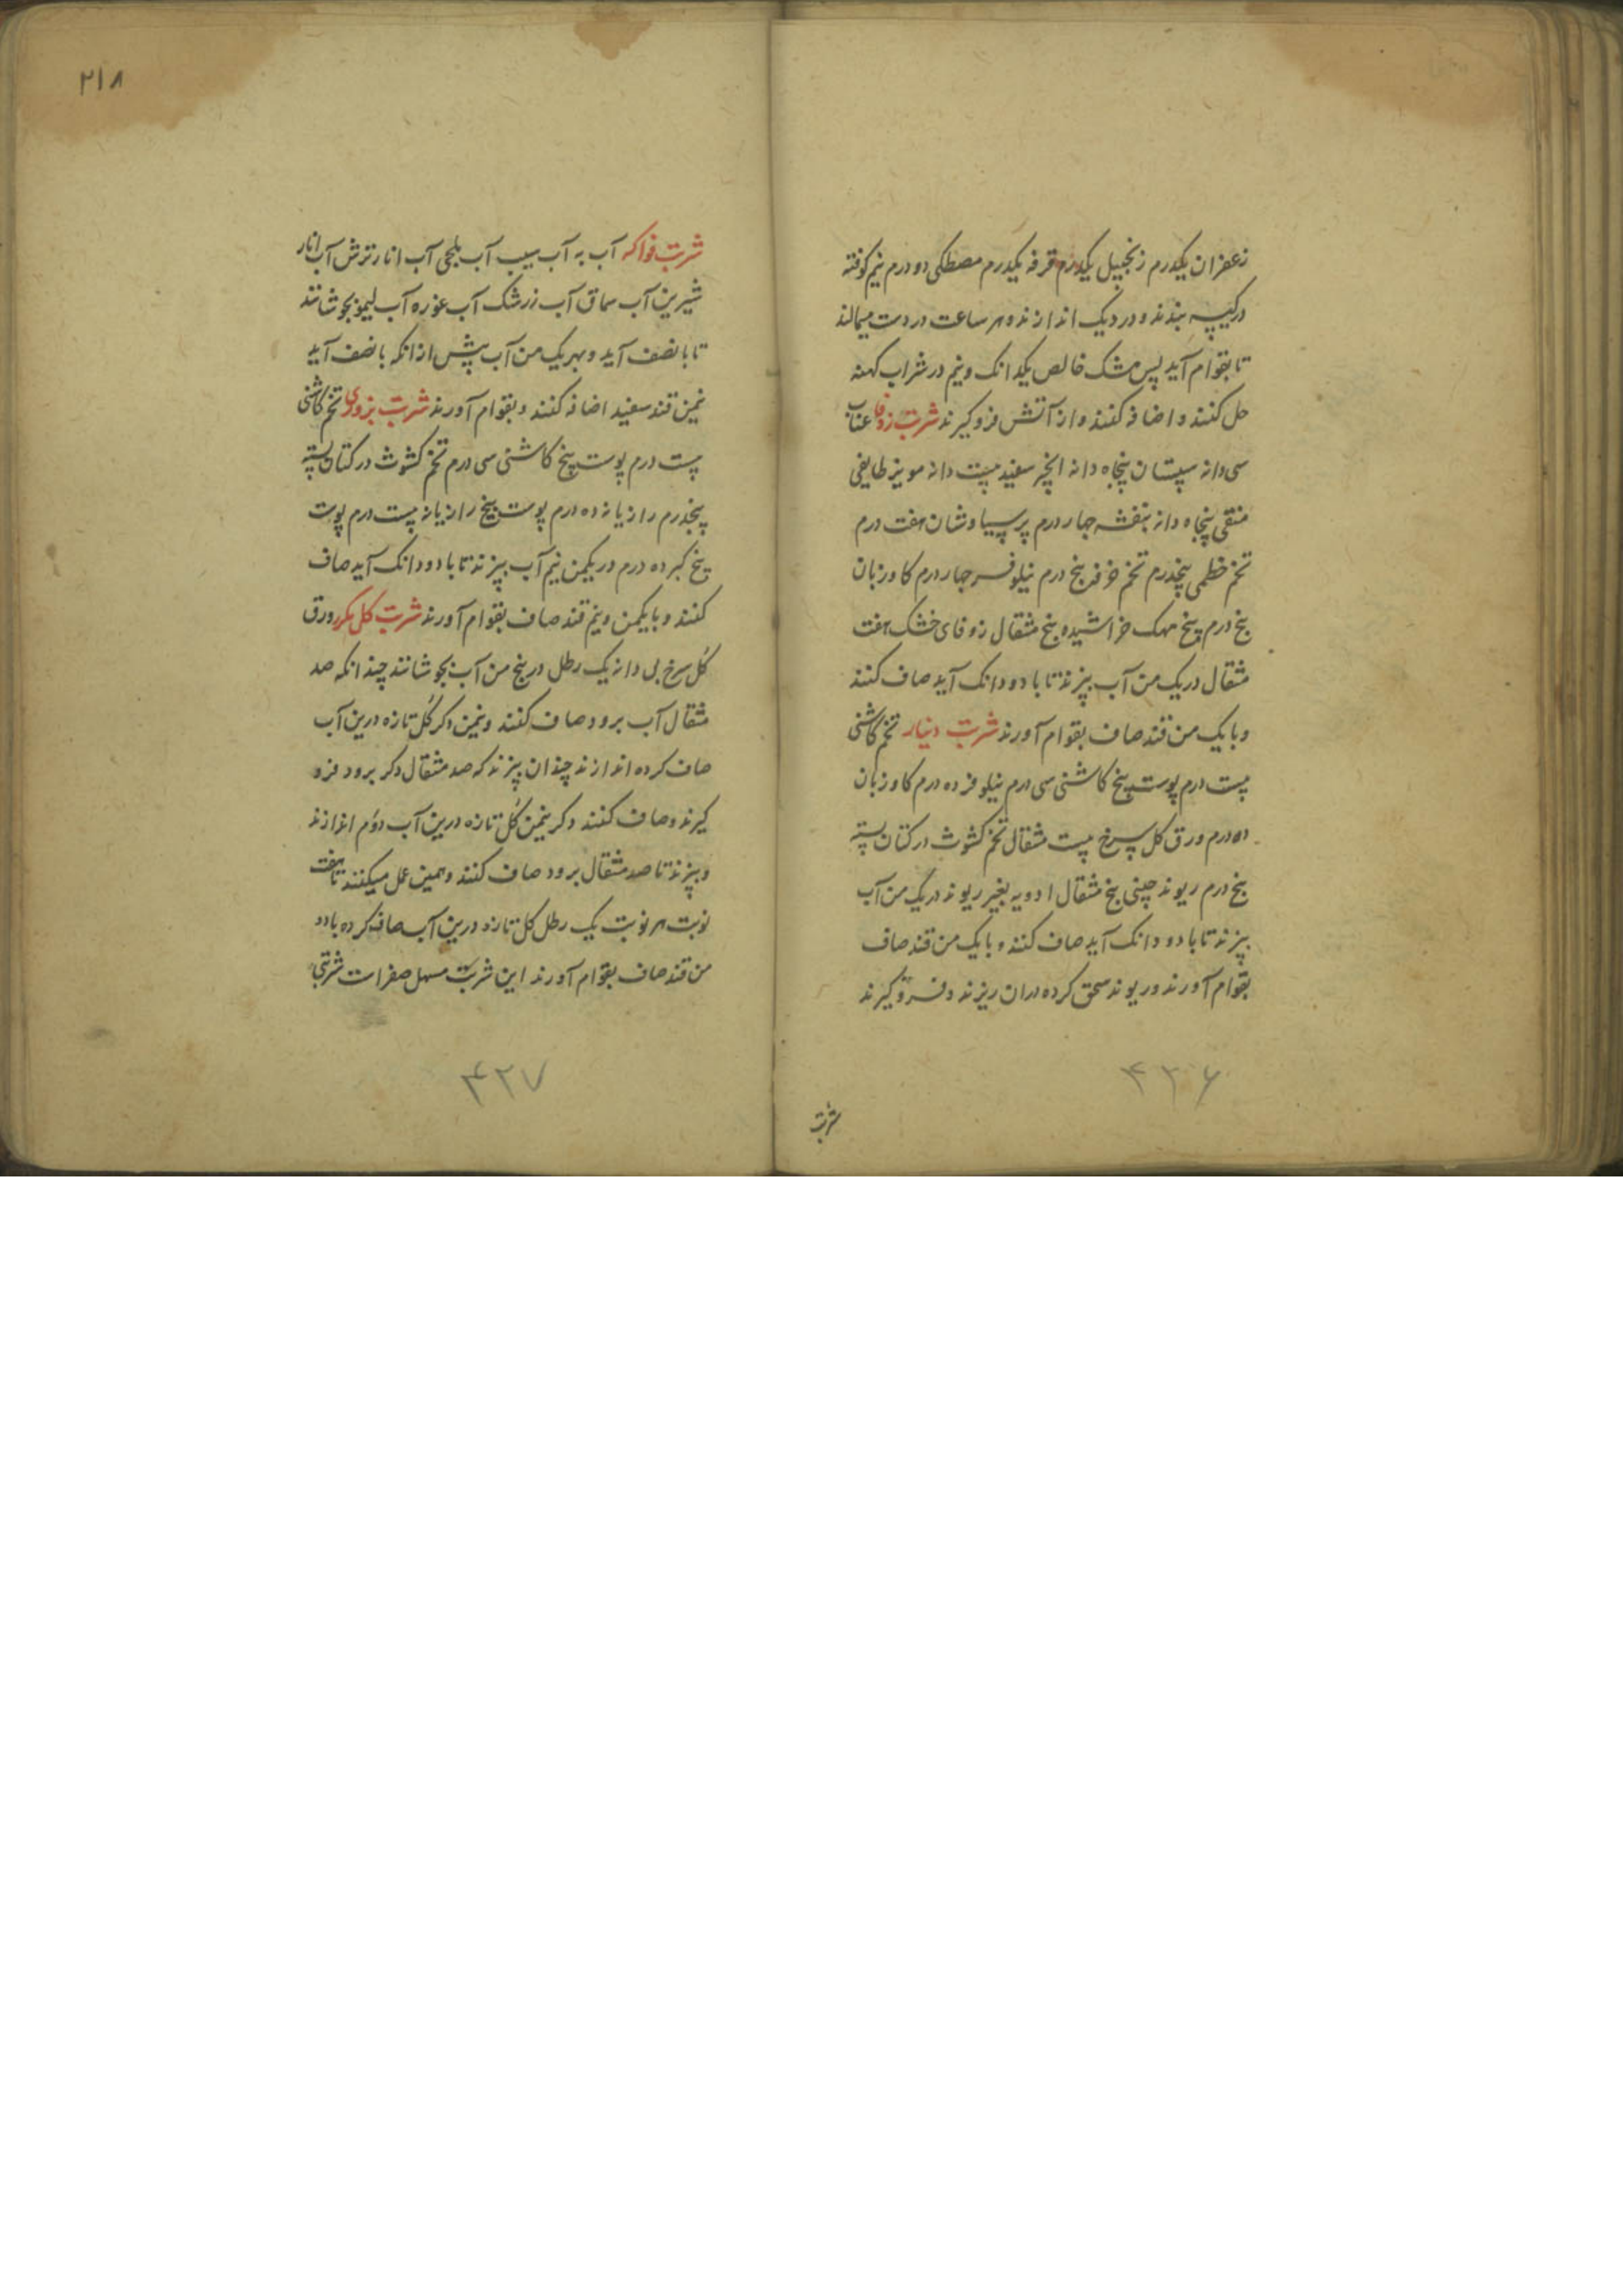 زعفران یکدرم زنجبیل یکدرم قرفه یکدرم مصطکی دو درم نیم کوفته
در کیسه بندند و در دیک اندازند و هر ساعت در دست میمالند
تا بقوام آید پس مشک خالص یکدانک و نیم در شراب کهنه
حل کنند و اضافه کنند و از آتش فرو کیرند شربت زوفا عناب
سی دانه سپستان پنجاه دانه انجیر سفید بیست دانه مویز طایفی
منقی پنجاه دانه بنفشه چهار درم پرسیاوشان هفت درم
تخم خطمی پنجدرم تخم خرفه پنج درم نیلوفر چهار درم کاوزبان
پنج درم بیخ مهک خراشیده پنج مثقال زوفای خشک هفت
مثقال در یک من آب بپزند تا با دو دانک آید صاف کنند
و با یک من قند صاف بقوام آورند شربت دینار تخم کاشنی
بیست درم پوست بیخ کاشنی سی درم نیلوفر ده درم کاوزبان
ده درم ورق کل سرخ بیست مثقال تخم کشوث در کتان بسته
پنج درم ریوند چینی پنج مثقال ادویه بغیر ریوند در یک من آب
بپزند تا با دو دانک آید صاف کنند و با یک من قند صاف
بقوام آورند و ریوند سحق کرده دران ریزند و فرو کیرند
۴۲۶
شربت
۲۱۸
شربت فواکه آب به آب سیب آب بلجی آب انار ترش آب انار
شیرین آب سماق آب زرشک آب غوره آب لیمو بجوشانند
تا با نصف آید و بهر یک من آب پیش از انکه با نصف آید
نیمن قند سفید اضافه کنند و بقوام آورند شربت بزوری تخم کاشنی
بیست درم پوست بیخ کاشنی سی درم تخم کشوث در کتان بسته
پنجدرم رازیانه ده درم پوست بیخ رازیانه بیست درم پوست
بیخ کبر ده درم در یکمن نیم آب بپزند تا با دو دانک آید صاف
کنند و با یکمن و نیم قند صاف بقوام آورند شربت کل مکرر ورق
کل سرخ بی دانه یک رطل در پنج من آب بجوشانند چندانکه صد
مثقال آب برود صاف کنند و نیمن دکر کل تازه درین آب
صاف کرده اندازند چندان بپزند که صد مثقال دکر برود فرو
کیرند و صاف کنند دکر نیمن کل تازه درین آب دوم اندازند
و بپزند تا صد مثقال برود صاف کنند و همین عمل میکنند تا هفت
نوبت هر نوبت یک رطل کل تازه درین آب صاف کرده با دو
من قند صاف بقوام آورند این شربت مسهل صفراست شربتی
۴۲۷